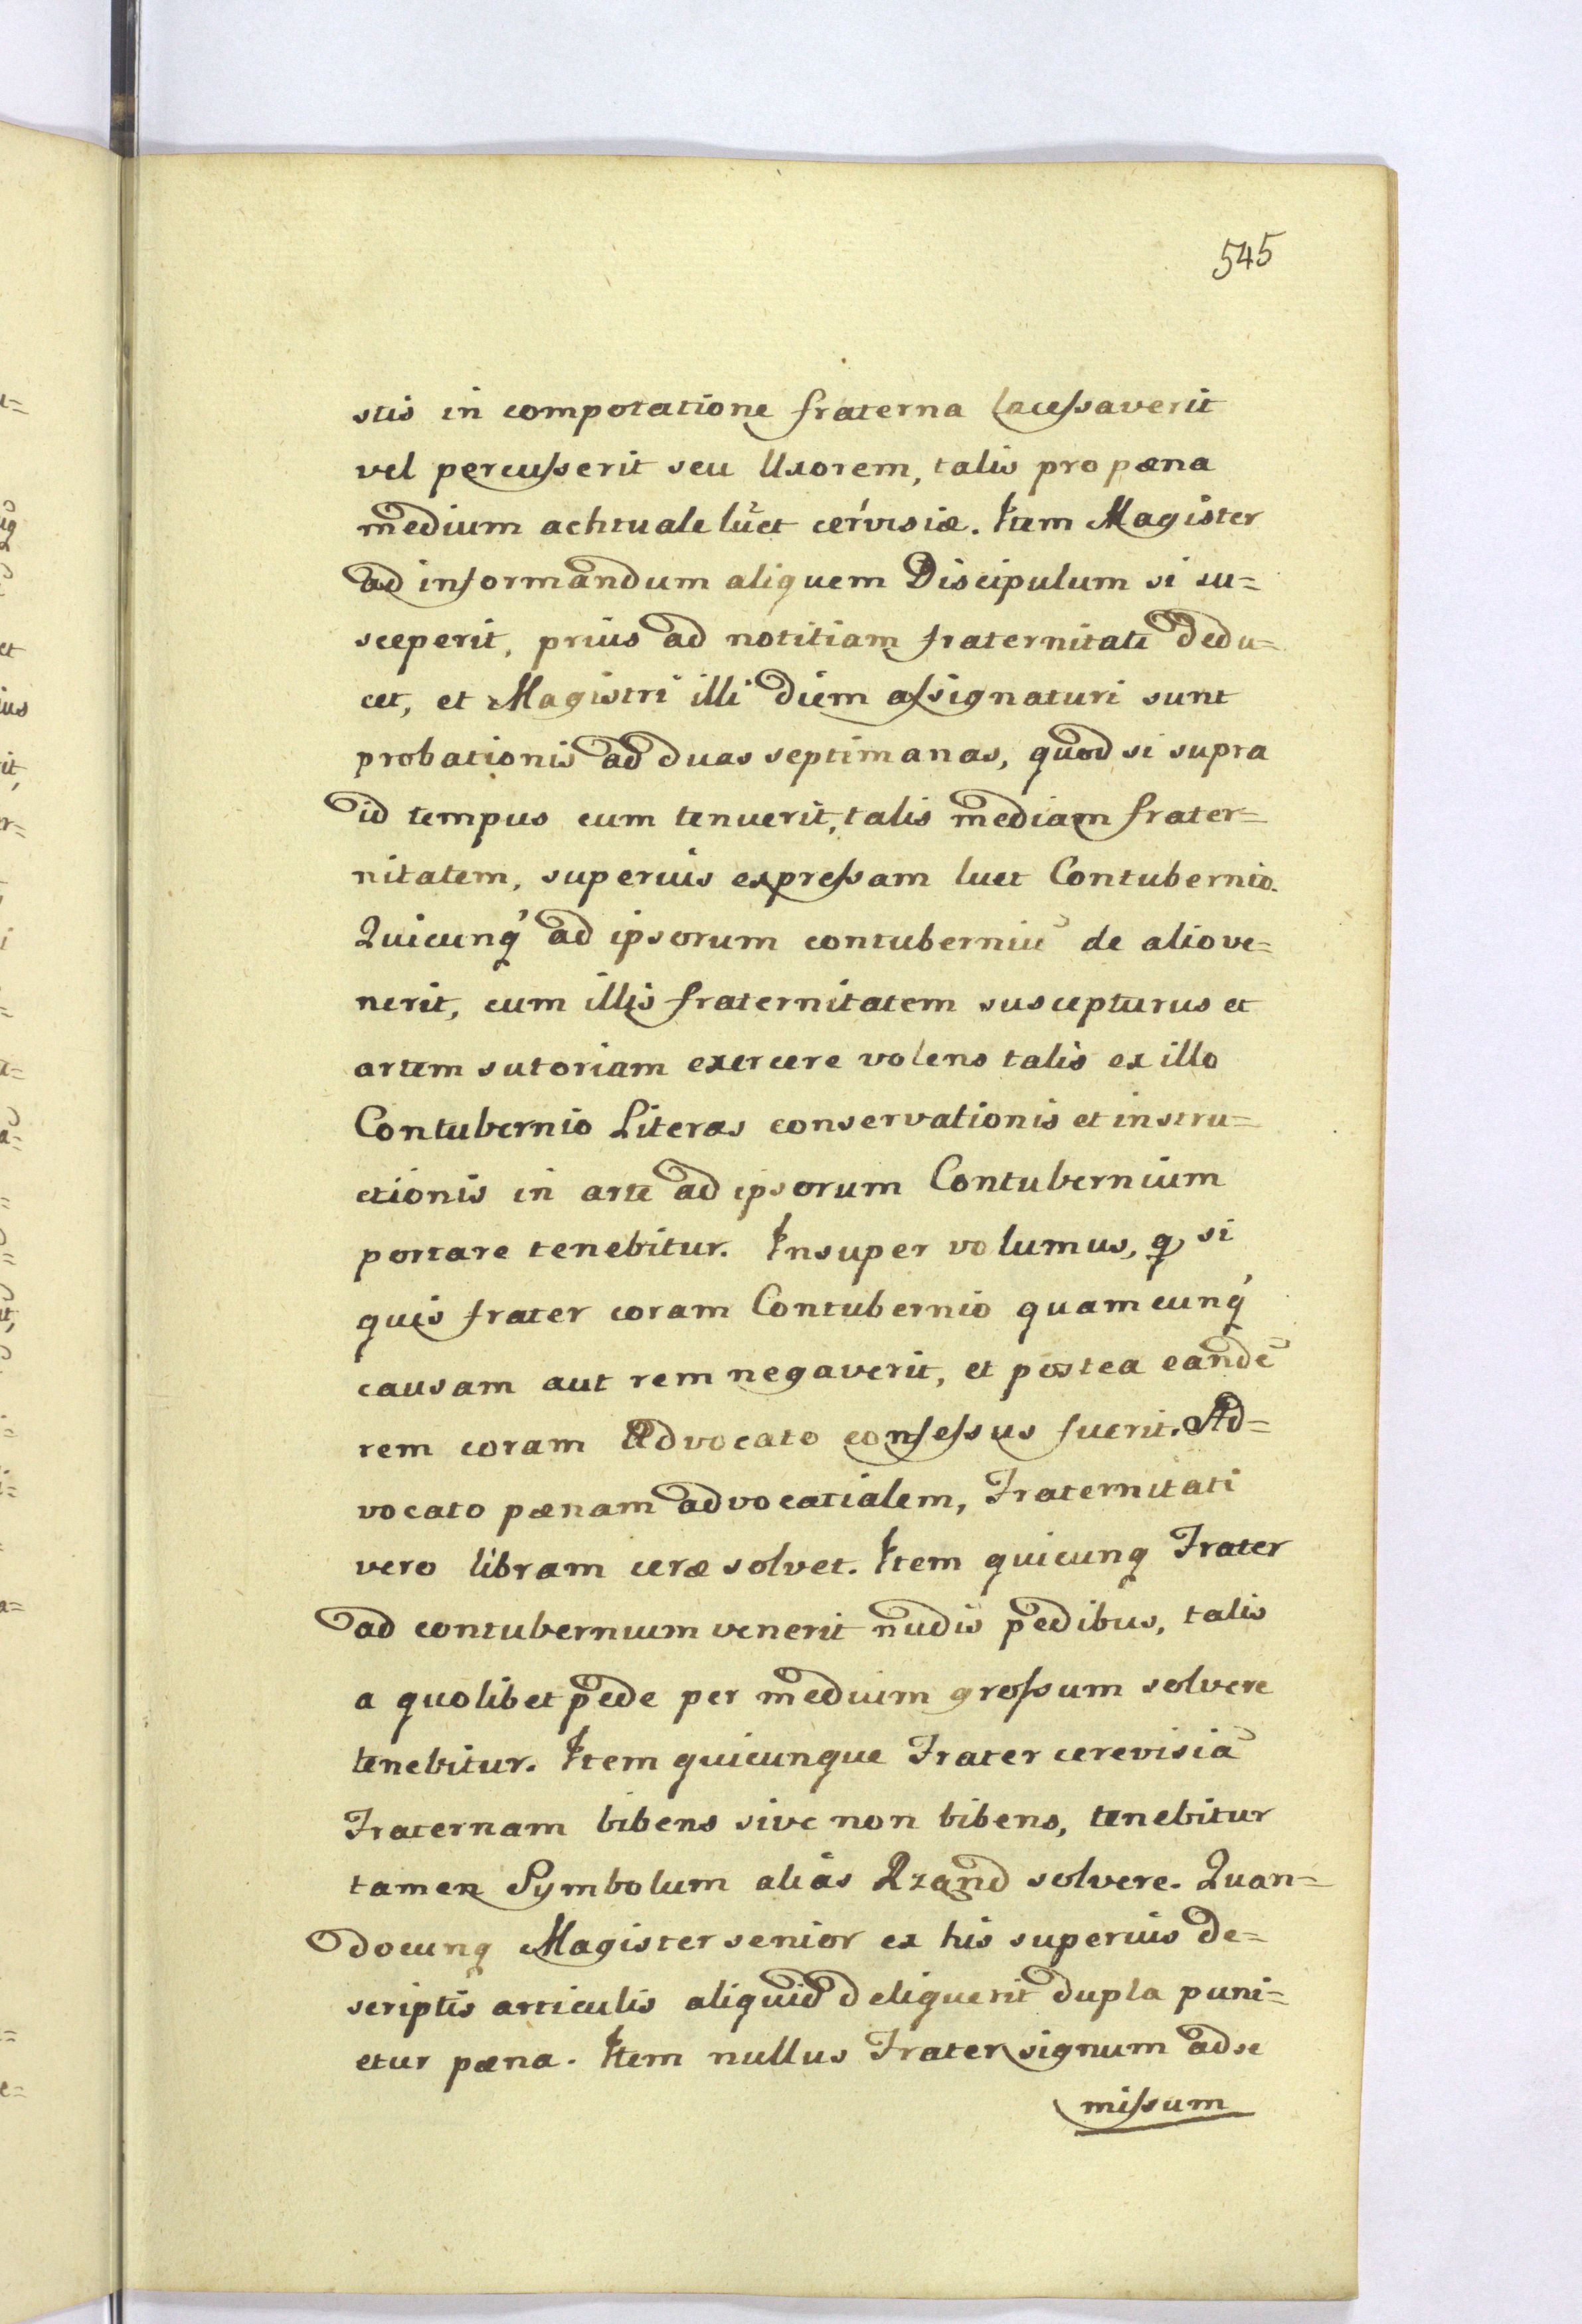 545
stis in compotatione fraterna lacessaverit
vel percusserit seu Uxorem, talis pro pæna
medium achtuale luet cervisiæ. Item Magister
ad informandum aliquem Discipulum si su=
sceperit, prius ad notitiam fraternitati dedu=
cet, et Magistri illi diem assignaturi sunt
probationis ad duas septimanas, quod si supra
id tempus eum tenuerit, talis mediam frater=
nitatem, superius expressam luet Contubernio.
Quicunq́ ad ipsorum contuberniu᷃ de alio ve=
nerit, cum illis fraternitatem suscepturus et
artem sutoriam exercere volens talis ex illo
Contubernio Literas conservationis et instru=
ctionis in arte ad ipsorum Contubernium
portare tenebitur. Insuper volumus, q si
quis frater coram Contubernio quamcunq́
causam aut rem negaverit, et postea eandē
rem coram Advocato confessus fuerit. Ad=
vocato pænam advocatialem, Fraternitati
vero libram ceræ solvet. Item quicunq Frater
ad contubernium venerit nudis pedibus, talis
a quolibet pede per medium grossum solvere
tenebitur. Item quicunque Frater cerevisiā
Fraternam bibens sive non bibens, tenebitur
tamen Symbolum alias Rzand solvere. Quan=
documq Magister senior ex his superius de=
scriptis articulis aliquid deliquerit dupla puni=
etur pæna. Item nullus Frater signum ad se
missum